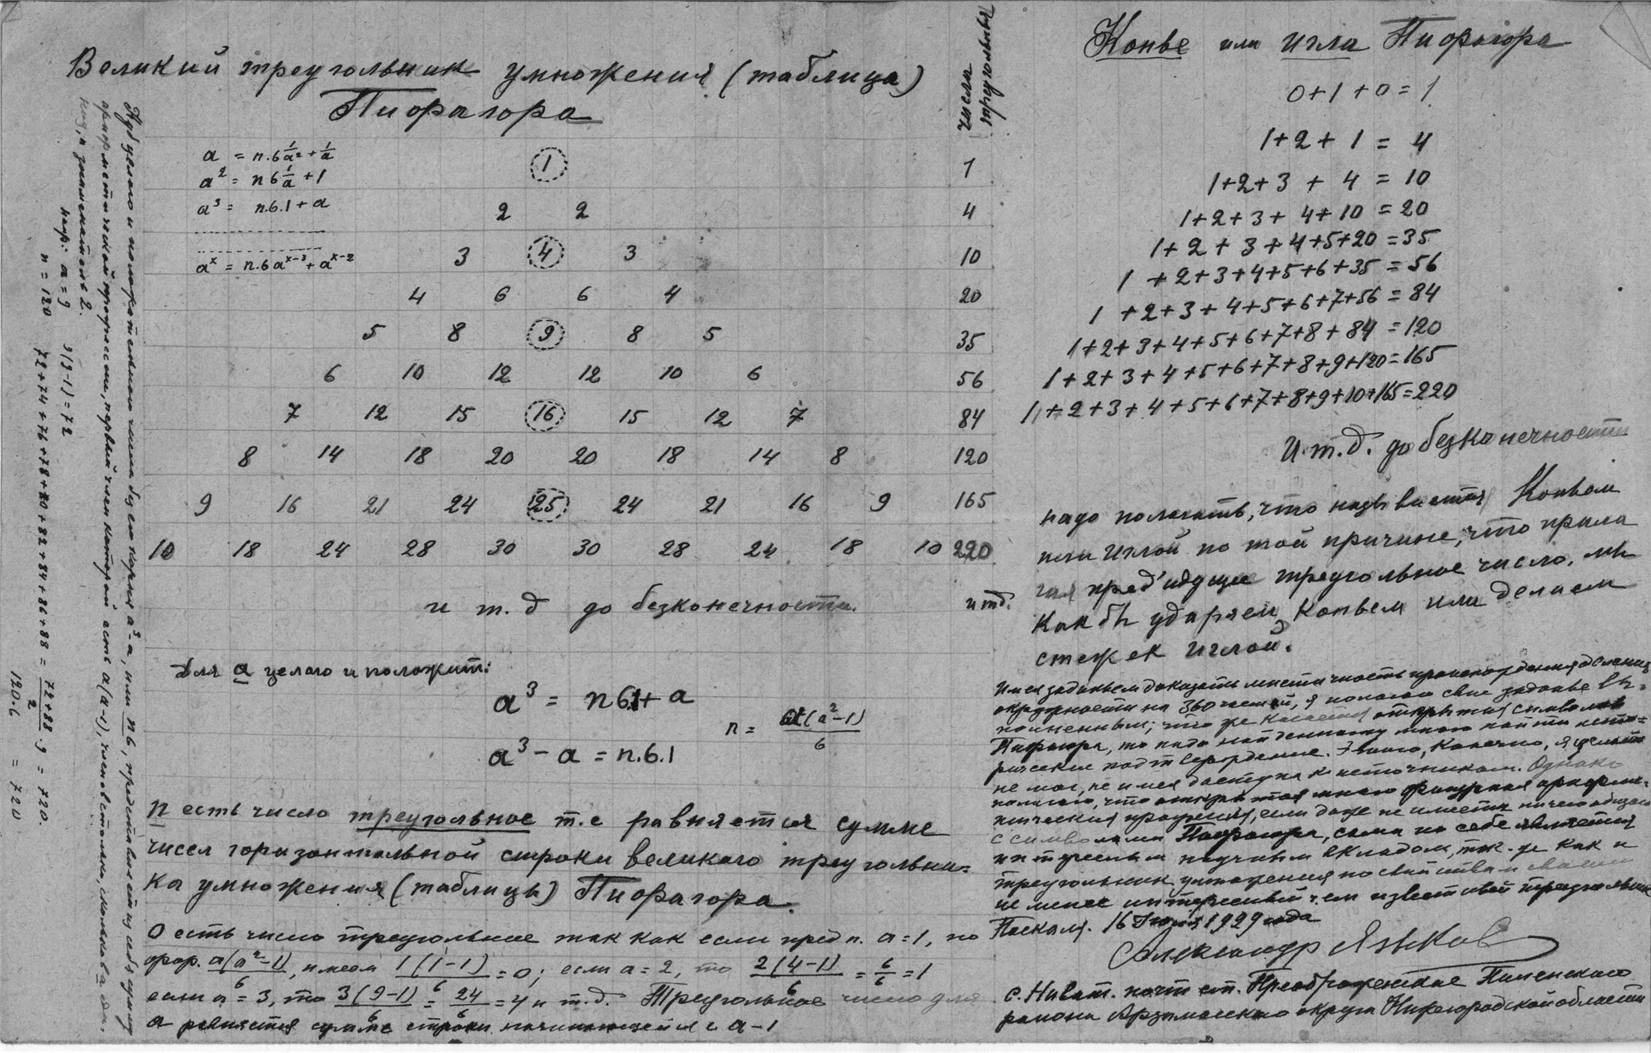 Великий треугольник умножения (таблица)
Пифагора
числа
треугольные
a = n.6 1/a² + 1/a
a² = n 6 1/a + 1
a³ = n.6.1 + a
aˣ = n.6 aˣ⁻³ + aˣ⁻²
1 1
2 2 4
3 4 3 10
4 6 6 4 20
5 8 9 8 5 35
6 10 12 12 10 6 56
7 12 15 16 15 12 7 84
8 14 18 20 20 18 14 8 120
9 16 21 24 25 24 21 16 9 165
10 18 24 28 30 30 28 24 18 10 220
и т. д до безконечности. и тд.
Для a целого и положит:
a³ = n 6.1 + a
a³ − a = n.6.1
n = a(a²−1)/6
n есть число треугольное т.е равняется сумме
чисел горизонтальной строки великого треугольни-
ка умножения (таблицы) Пифагора.
0 есть число треугольное так как если пред п. a=1, по
фор. a(a²−1)/6, имеем 1(1−1)/6 = 0; если a = 2, то 2(4−1)/6 = 6/6 = 1
если a = 3, то 3(9−1)/6 = 24/6 = 4 и т.д. Треугольное число для
a равняется сумме строки начинающейся с a−1
Куб целого и положительного числа без его корня a³−a, или n6, представляет из себя сумму
арифметической прогрессии, первый член которой есть a(a−1), членов столько, сколько в a ед.,
a знаменатель 2.
напр: a = 9 9(9−1) = 72
n = 120 72+74+76+78+80+82+84+86+88 = (72+88)/2 · 9 = 720.
120·6 = 720
Копье или игла Пифагора
0+1+0=1
1+2+1 = 4
1+2+3+4 = 10
1+2+3+4+10 = 20
1+2+3+4+5+20 = 35
1+2+3+4+5+6+35 = 56
1+2+3+4+5+6+7+56 = 84
1+2+3+4+5+6+7+8+84 = 120
1+2+3+4+5+6+7+8+9+120 = 165
1+2+3+4+5+6+7+8+9+10+165 = 220
И.т.д. до безконечности
надо полагать, что называется Копьем
или Иглой по той причине, что прила
гая пред'идущее треугольное число, мы
как бы ударяем Копьем или делаем
стежек иглой.
Имея заданьем доказать происхождения деления
окружности на 360 частей, я полагаю свое заданье вы-
полненным; что же касается открытия символов
Пифагора, то надо найденному много найти исто-
рическое подтверждение. Этого, конечно, я сделать
не мог, не имея доступа к источникам. Однако
полагаю, что открытая мною фигурная арифме-
тическая прогрессия, если даже не имеет ничего общего
с символами Пифагора, сама по себе является
интересным научным вкладом, так-же как и
треугольник умножения по свойствам своим
не менее интересный чем известный треугольник
Паскаля. 16 1929 года
Александр Языков
с. Ивашк. почт. от. Преображенское
района Арзамасского округа Нижегородской области